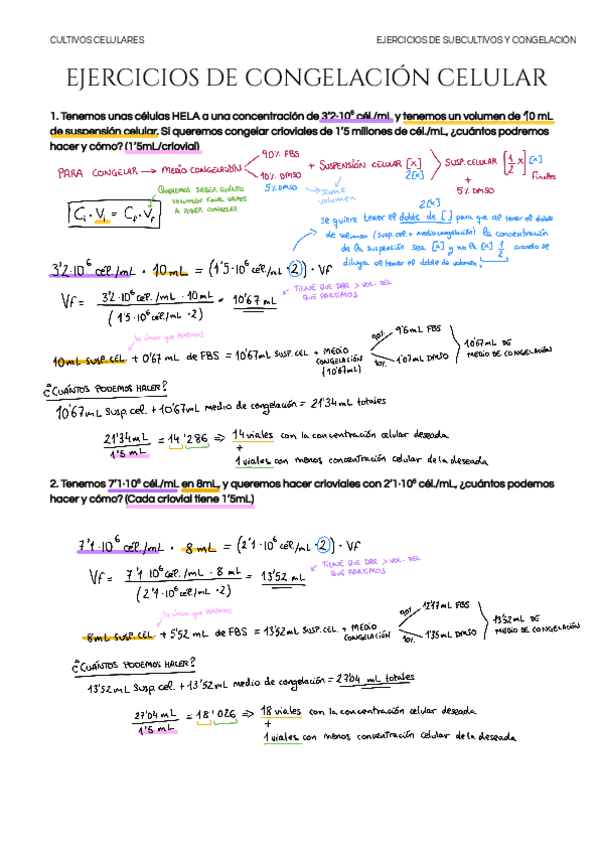 CULTIVOS CELULARES
EJERCICIOS DE SUBCULTIVOS Y CONGELACIÓN
EJERCICIOS DE CONGELACIÓN CELULAR
1. Tenemos unas células HELA a una concentración de 3'2·10⁶ cél./mL y tenemos un volumen de 10 mL
de suspensión celular. Si queremos congelar crioviales de 1'5 millones de cél./mL, ¿cuántos podremos
hacer y cómo? (1'5mL/criovial)
PARA CONGELAR → MEDIO CONGELACIÓN
90% FBS
10% DMSO
5% DMSO
+ SUSPENSIÓN CELULAR [x]
2[x]
SUSP. CELULAR [1/2 x] [x]
+
5% DMSO
Finales
QUEREMOS SABER CUÁNTO
VOLUMEN FINAL VAMOS
A PODER CONGELAR
same
volumen
Ci · Vi = Cf · Vf
2[x]
se quiere tener el doble de [ ] para que al tener el doble
de volumen (susp. cel + medio congelación) la concentración
de la suspensión sea [x] y no la [x] 1/2 cuando se
diluya al tener el doble de volumen.
3'2·10⁶ cél./mL · 10mL = (1'5·10⁶ cél./mL · 2) · Vf
Vf = 3'2·10⁶ cél./mL · 10mL / (1'5·10⁶ cél./mL · 2) = 10'67 mL
TIENE QUE DAR > VOL. DEL
QUE PARTIMOS
lo único que tenemos
10mL SUSP. CEL. + 0'67 mL de FBS = 10'67mL SUSP. CEL. + MEDIO CONGELACIÓN (10'67mL)
90% 9'6mL FBS
10% 1'07mL DMSO
10'67mL DE
MEDIO DE CONGELACIÓN
¿CUÁNTOS PODEMOS HACER?
10'67mL Susp. cel. + 10'67mL medio de congelación = 21'34mL totales
21'34mL / 1'5 mL = 14'286 ⇒ 14 viales con la concentración celular deseada
+
1 viales con menos concentración celular de la deseada
2. Tenemos 7'1·10⁶ cél./mL en 8mL, y queremos hacer crioviales con 2'1·10⁶ cél./mL, ¿cuántos podemos
hacer y cómo? (Cada criovial tiene 1'5mL)
7'1·10⁶ cél./mL · 8mL = (2'1·10⁶ cél./mL · 2) · Vf
Vf = 7'1·10⁶ cél./mL · 8mL / (2'1·10⁶ cél./mL · 2) = 13'52 mL
TIENE QUE DAR > VOL. DEL
QUE PARTIMOS
lo único que tenemos
8mL SUSP. CEL. + 5'52 mL de FBS = 13'52mL SUSP. CEL. + MEDIO CONGELACIÓN
90% 12'17mL FBS
10% 1'35mL DMSO
13'52mL DE
MEDIO DE CONGELACIÓN
¿CUÁNTOS PODEMOS HACER?
13'52mL Susp. cel. + 13'52mL medio de congelación = 27'04 mL totales
27'04mL / 1'5 mL = 18'026 ⇒ 18 viales con la concentración celular deseada
+
1 viales con menos concentración celular de la deseada